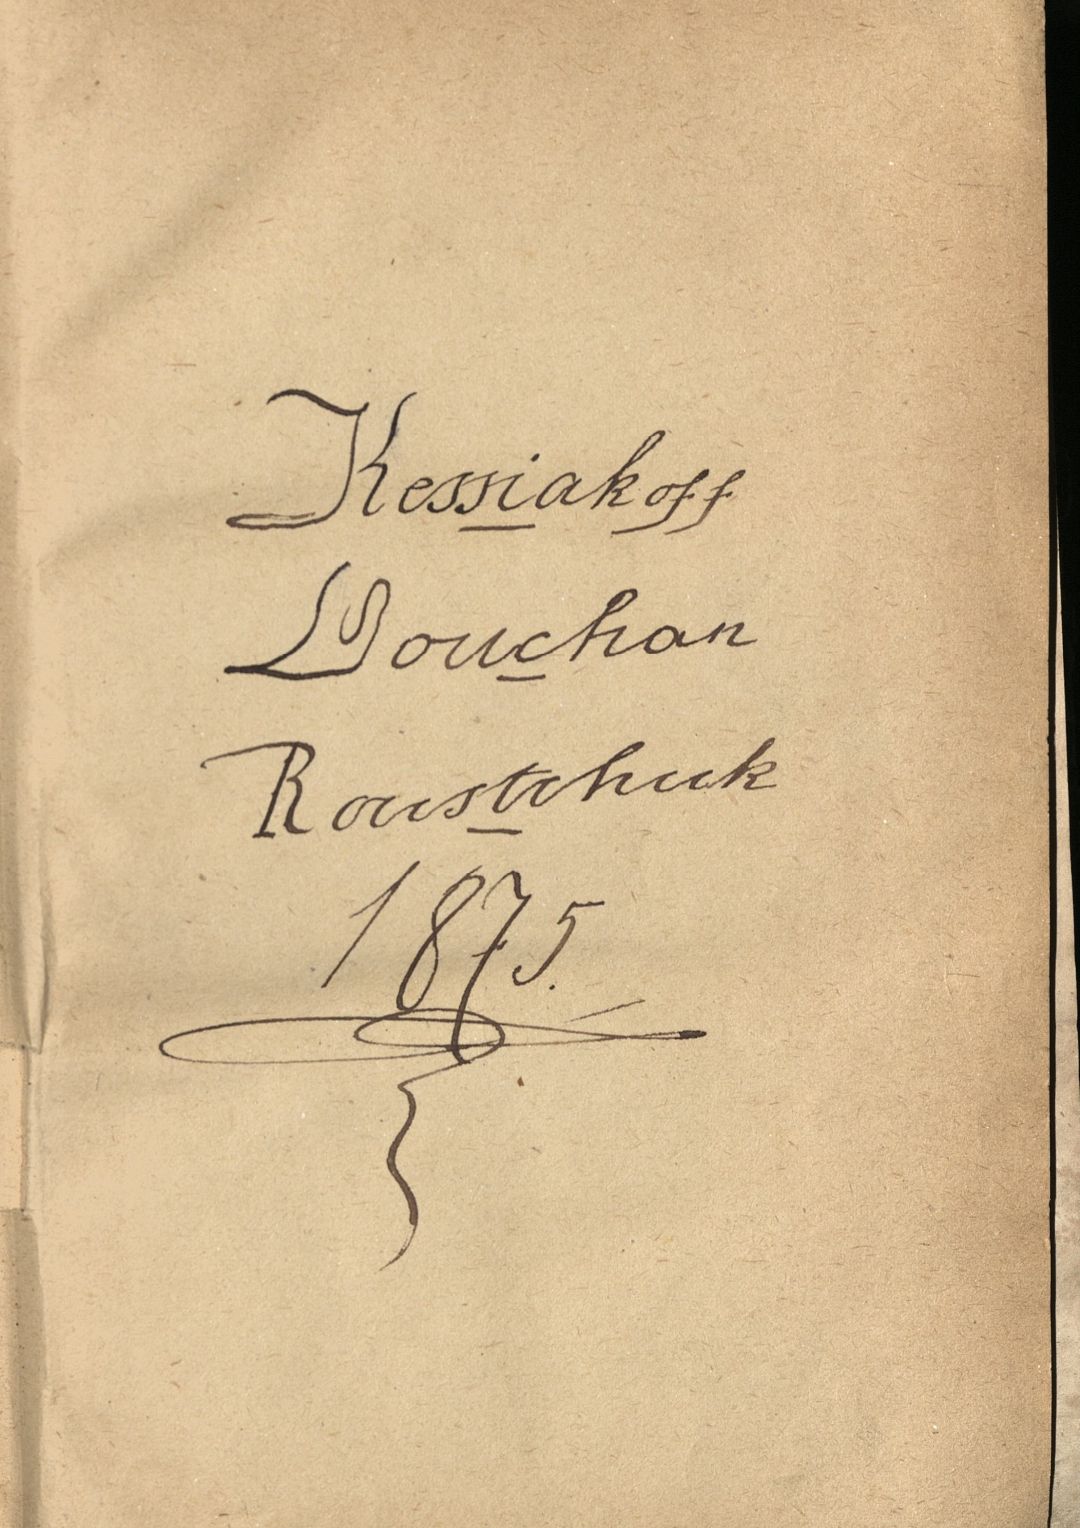 Kessiakoff
Douchan
Roustchuk
1875.